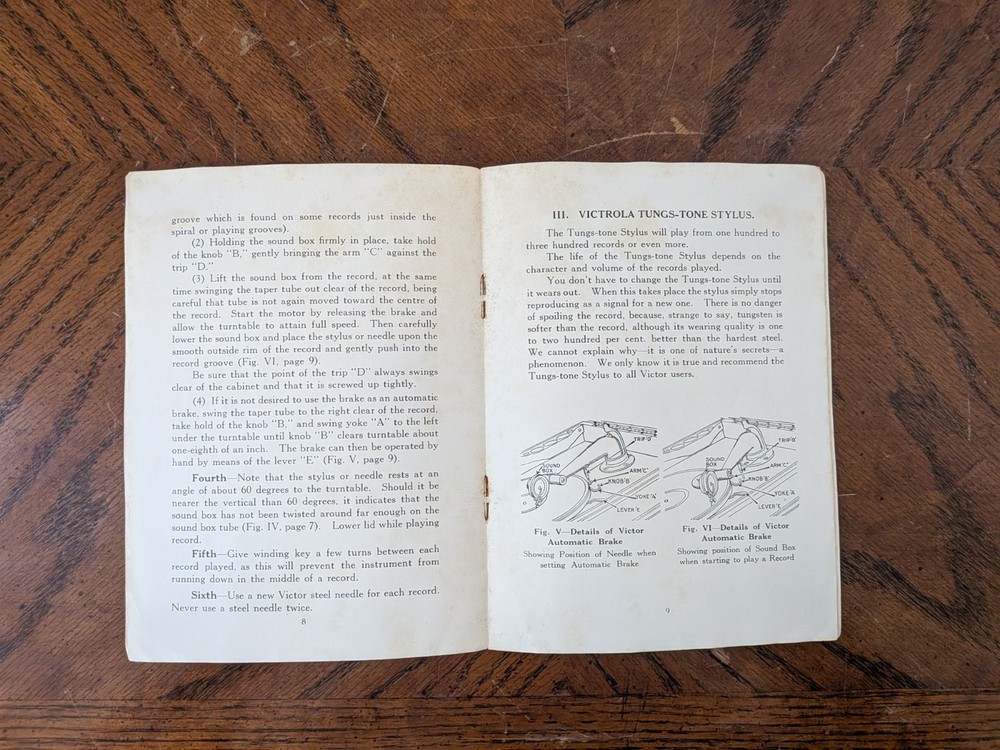 groove which is found on some records just inside the
spiral or playing grooves).
(2) Holding the sound box firmly in place, take hold
of the knob "B," gently bringing the arm "C" against the
trip "D."
(3) Lift the sound box from the record, at the same
time swinging the taper tube out clear of the record, being
careful that tube is not again moved toward the centre of
the record. Start the motor by releasing the brake and
allow the turntable to attain full speed. Then carefully
lower the sound box and place the stylus or needle upon the
smooth outside rim of the record and gently push into the
record groove (Fig. VI, page 9).
Be sure that the point of the trip "D" always swings
clear of the cabinet and that it is screwed up tightly.
(4) If it is not desired to use the brake as an automatic
brake, swing the taper tube to the right clear of the record,
take hold of the knob "B," and swing yoke "A" to the left
under the turntable until knob "B" clears turntable about
one-eighth of an inch. The brake can then be operated by
hand by means of the lever "E" (Fig. V, page 9).
Fourth—Note that the stylus or needle rests at an
angle of about 60 degrees to the turntable. Should it be
nearer the vertical than 60 degrees, it indicates that the
sound box has not been twisted around far enough on the
sound box tube (Fig. IV, page 7). Lower lid while playing
record.
Fifth—Give winding key a few turns between each
record played, as this will prevent the instrument from
running down in the middle of a record.
Sixth—Use a new Victor steel needle for each record.
Never use a steel needle twice.
8
III. VICTROLA TUNGS-TONE STYLUS.
The Tungs-tone Stylus will play from one hundred to
three hundred records or even more.
The life of the Tungs-tone Stylus depends on the
character and volume of the records played.
You don't have to change the Tungs-tone Stylus until
it wears out. When this takes place the stylus simply stops
reproducing as a signal for a new one. There is no danger
of spoiling the record, because, strange to say, tungsten is
softer than the record, although its wearing quality is one
to two hundred per cent. better than the hardest steel.
We cannot explain why—it is one of nature's secrets—a
phenomenon. We only know it is true and recommend the
Tungs-tone Stylus to all Victor users.
TRIP "D"
SOUND
BOX
ARM "C"
KNOB "B"
YOKE "A"
LEVER "E"
Fig. V—Details of Victor
Automatic Brake
Showing Position of Needle when
setting Automatic Brake
SOUND
BOX
ARM "C"
KNOB "B"
YOKE "A"
LEVER "E"
Fig. VI—Details of Victor
Automatic Brake
Showing position of Sound Box
when starting to play a Record
9